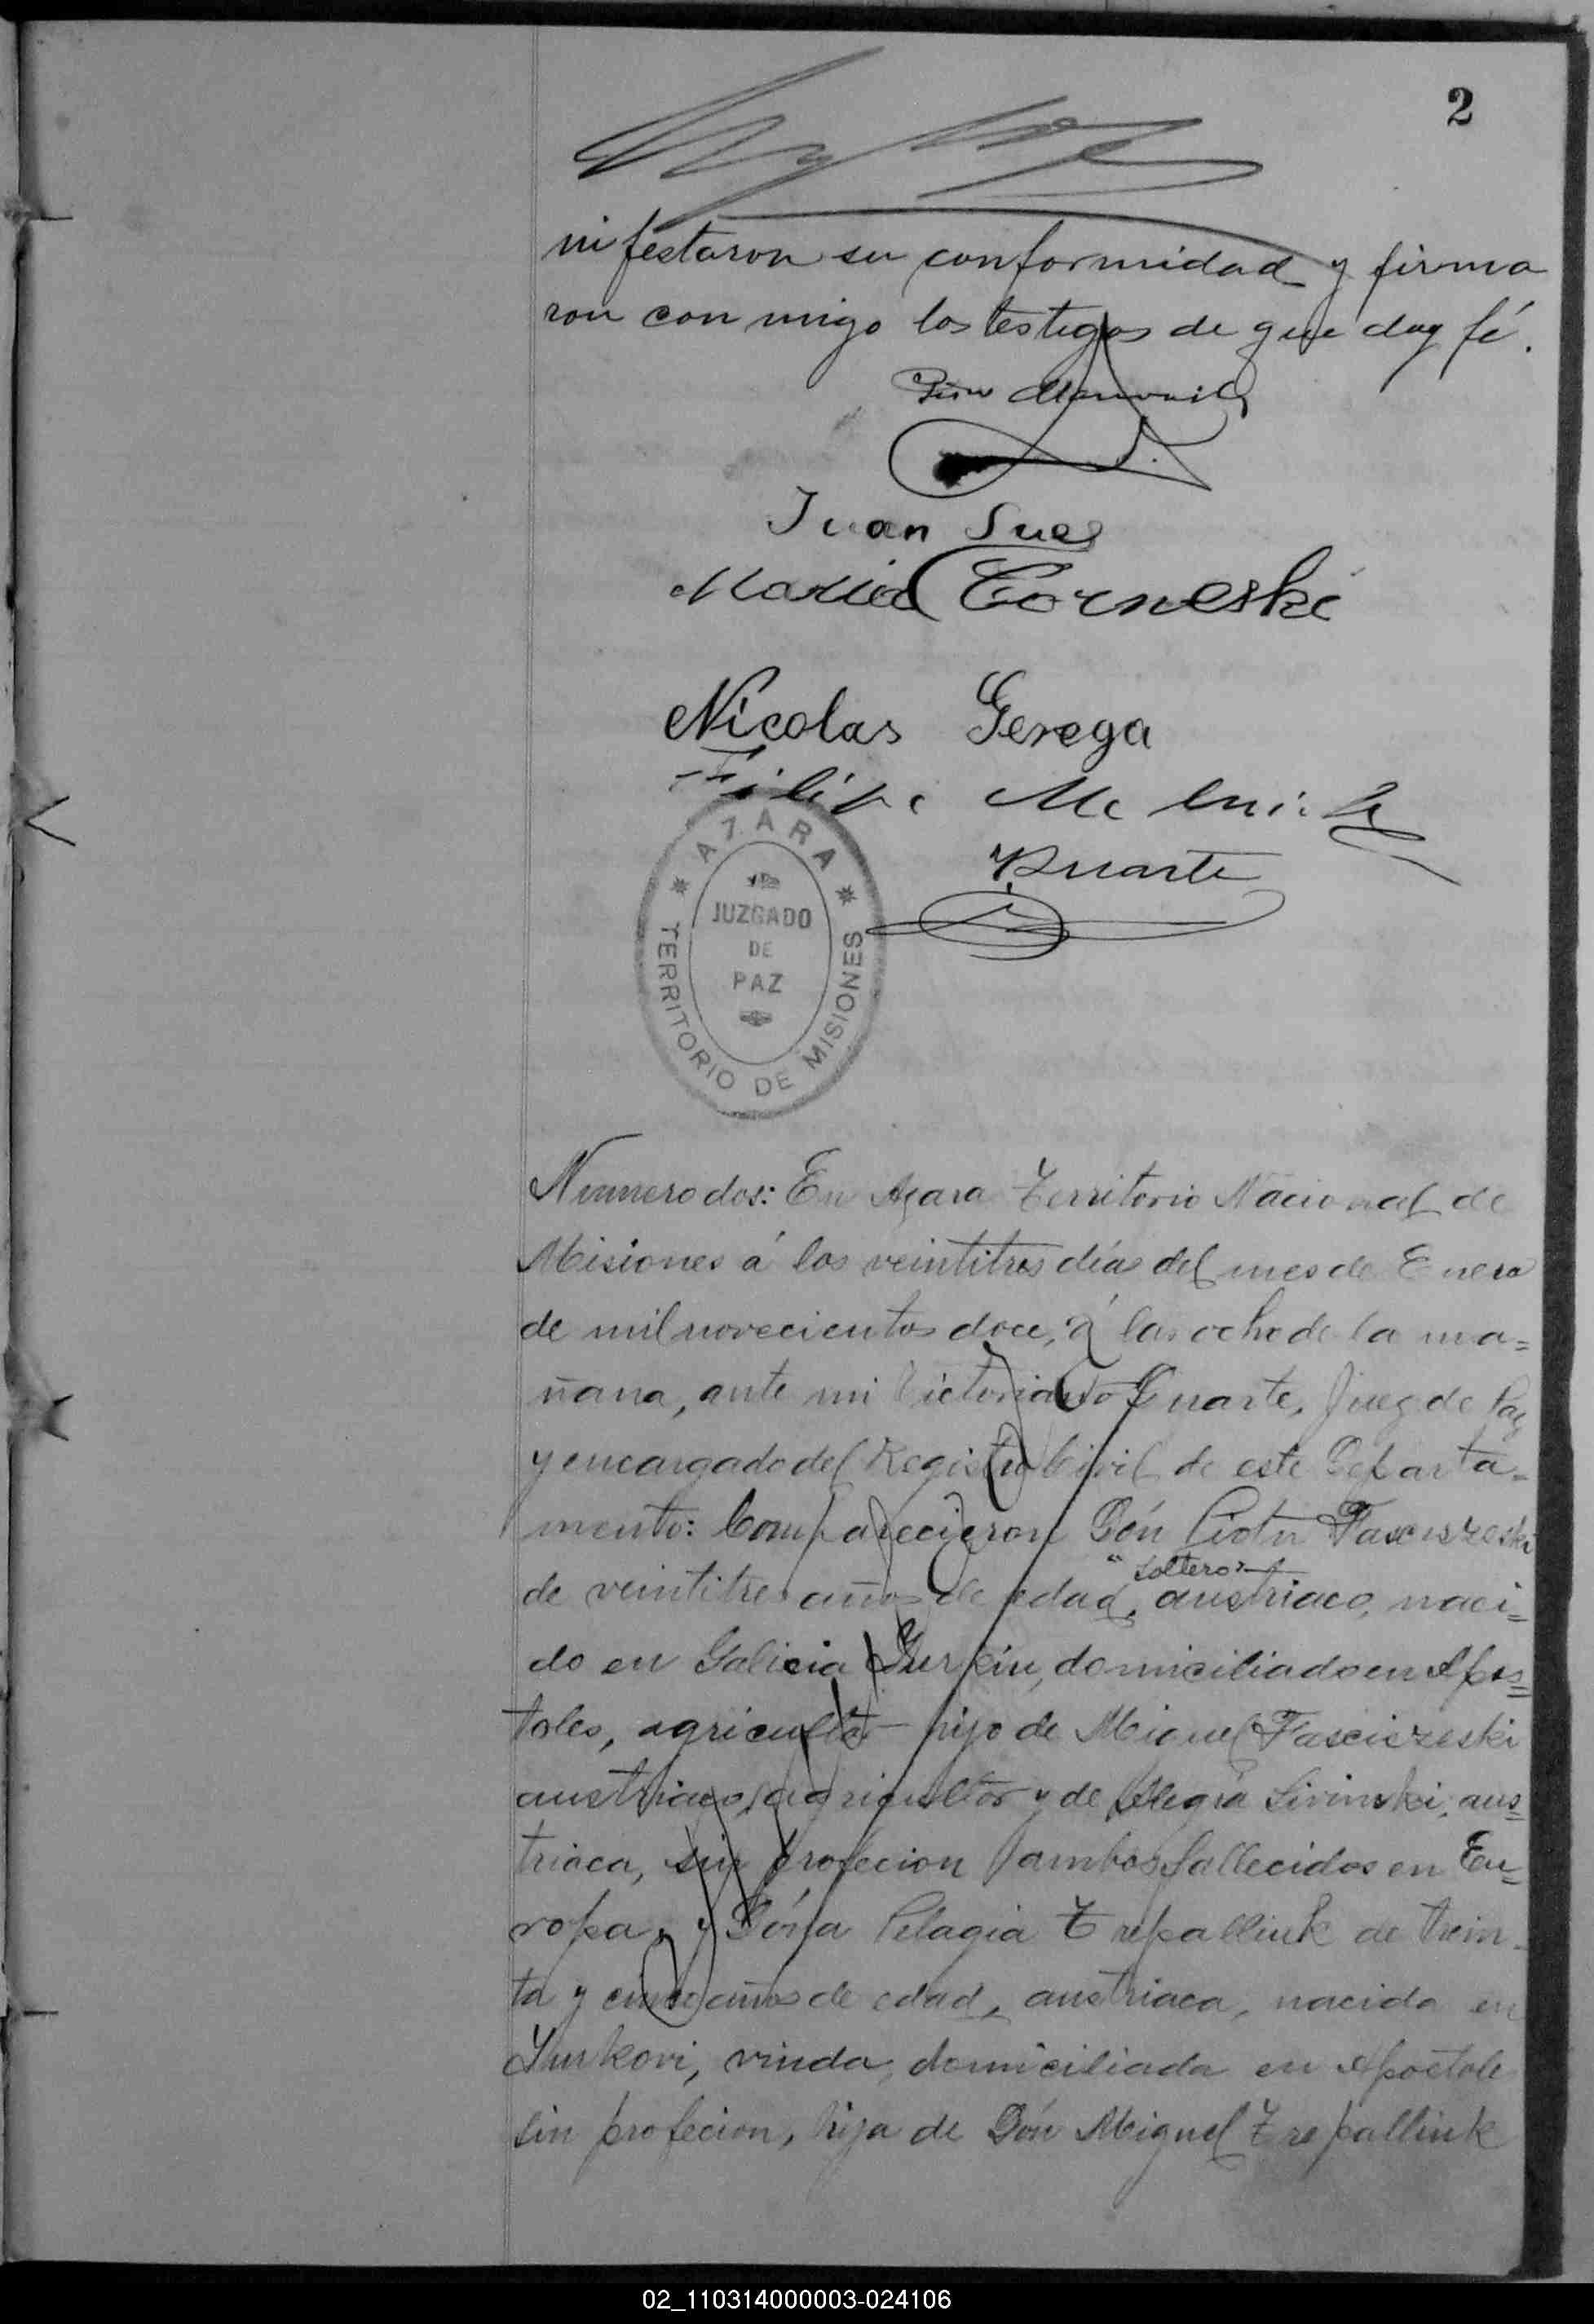 2
nifestaron su conformidad y firma
ron con migo los testigos de que doy fé.
Juan Sues
Maria Corneski
Nicolas Gerega
Felipe Melnik
Duarte
AZARA
JUZGADO
DE
PAZ
TERRITORIO DE MISIONES
Numero dos: En Azara Territorio Nacional de
Misiones á los veintitres días del mes de Enero
de mil novecientos doce, á las ocho de la ma=
ñana, ante mi Victoriano Duarte, Juez de Paz
y encargado del Registro Civil de este Departa-
mento: Comparecieron Dón Piotr Fasciszeski
"soltero"
de veintitres años de edad, austriaco, naci=
do en Galicia domiciliado en Apos=
toles, agricultor hijo de Miguel Fasciszeski
austriaco, agricultor y de Alegra Sirinski, aus=
triaca, sin profecion ambos fallecidos en Eu=
ropa, y Dóña Pelagia Trepalliuk de trein-
ta y cinco años de edad, austriaca, nacida en
Yurkovi, viuda, domiciliada en Apostole
sin profecion, hija de Dón Miguel Trepalliuk
02_110314000003-024106